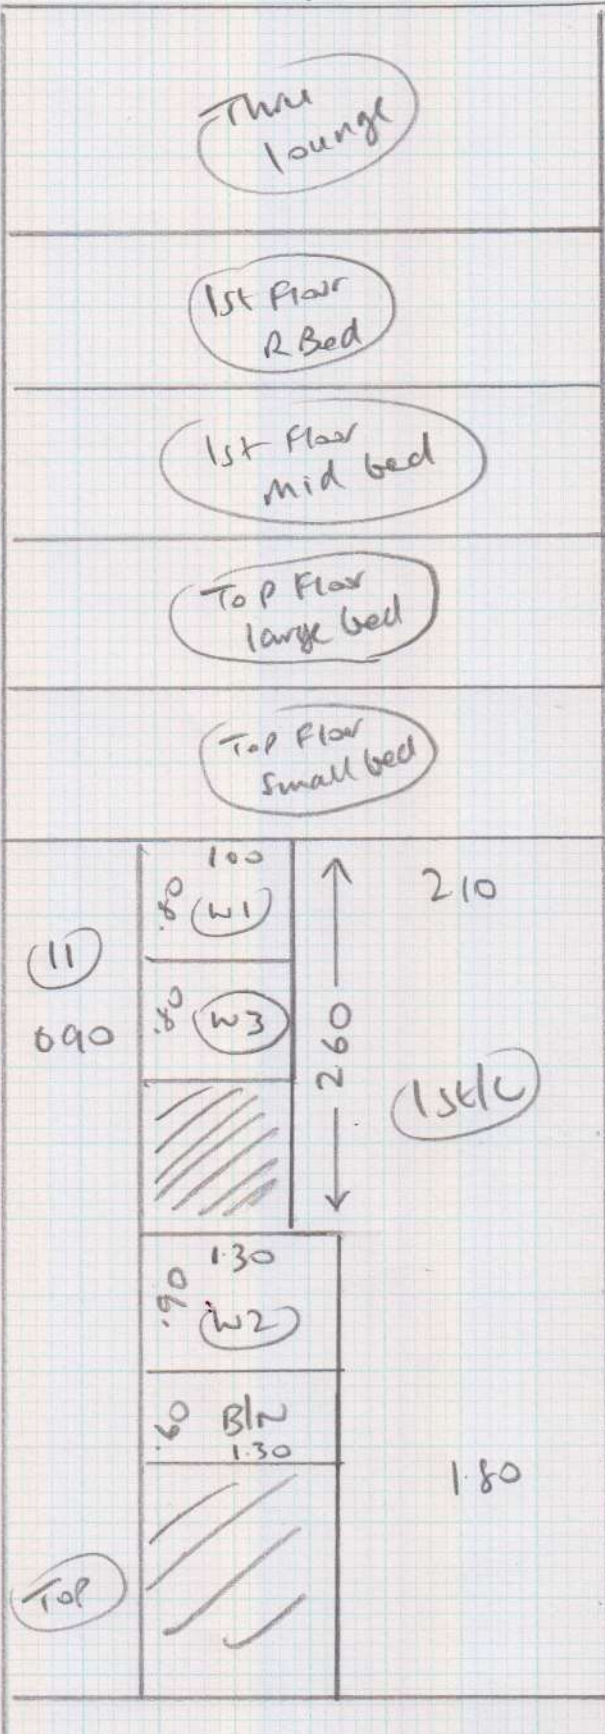 Thru
lounge
1st Floor
R Bed
1st Floor
Mid bed
Top Floor
large bed
Top Floor
Small bed
100
.80
W1
210
11
.80
W3
090
260
1st/L
1.30
.90
W2
.60
B/N
1.30
1.80
Top